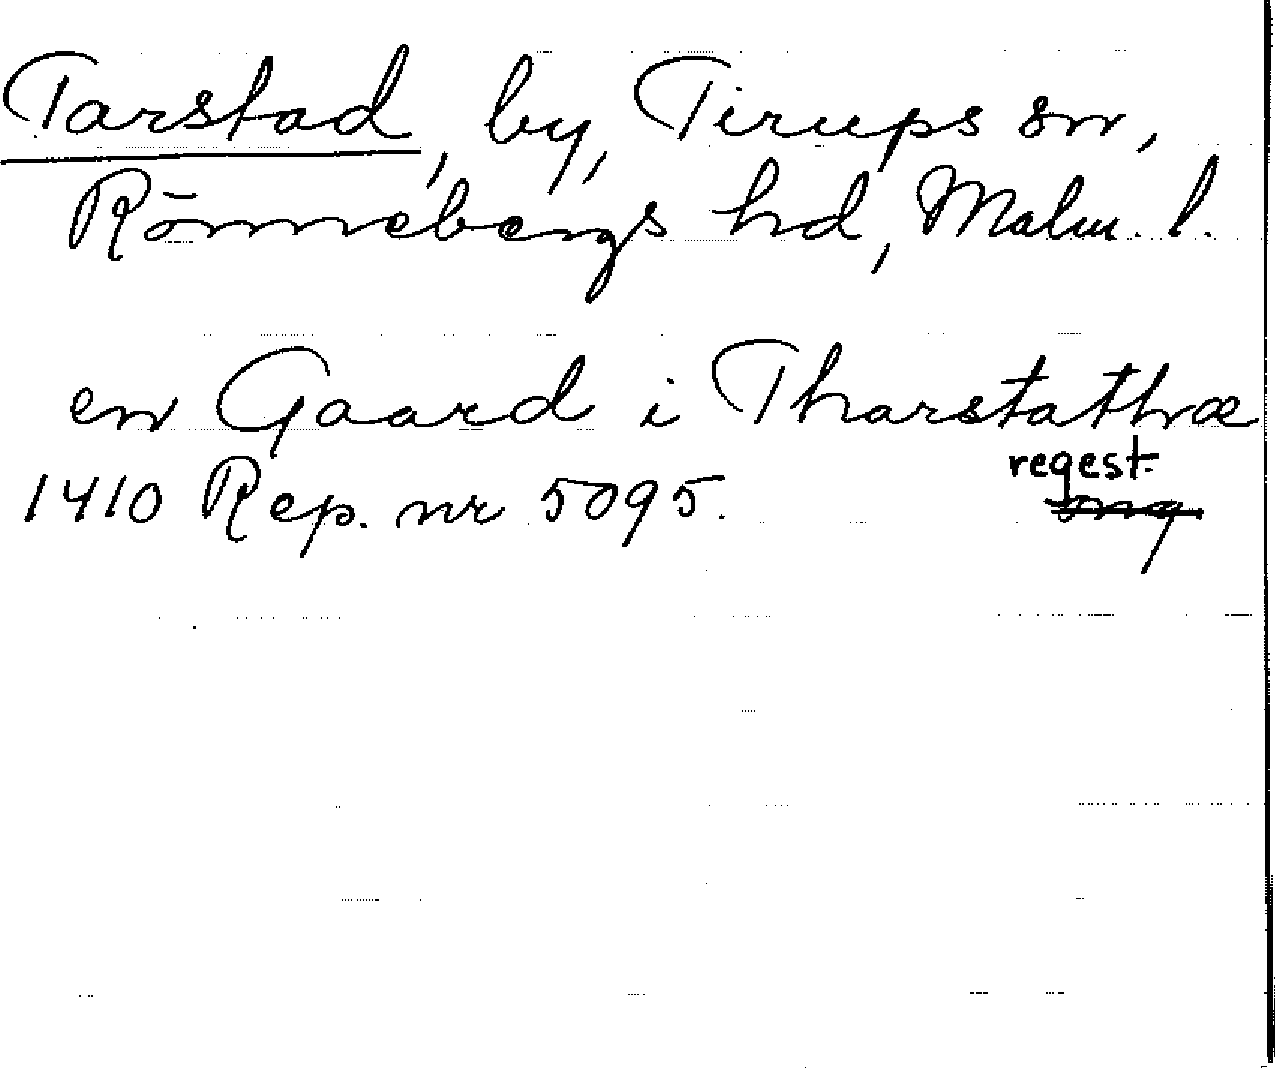 Tarstad, by, Tirups sn,
Rönnebergs hd, Malm. l.
en Gaard i Tharstathæ
regest.
1410 Rep. nr 5095.